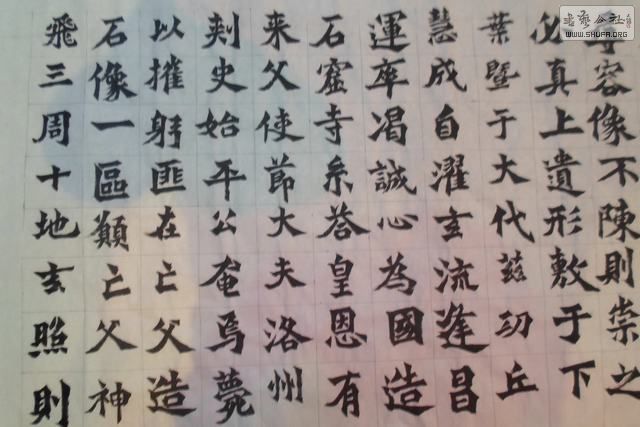 容像不陳則崇之
真上遺形敷于下
葉暨于大代茲功丘
慧成自濯玄流逢昌
運率渴誠心為國造
石窟寺系荅皇恩有
来父使節大夫洛州
刾史始平公奄焉薨
以摧躬匪在亡父造
石像一區顛亡父神
飛三周十地玄照則
書藝公社
WWW.SHUFA.ORG